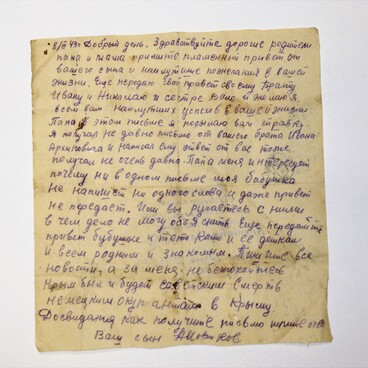 8/III 43г. Добрый день. Здравствуйте дорогие родители
папа и мама примите пламенный привет от
вашего сына и наилутшие пожелания в вашей
жизни. Еще передаю свой привет своему брату
Ивану и Николаю и сестре Вале и желаю я
всем вам наилутших успехов в вашей жизни
Папа в этом письме я посылаю вам справку,
я получил не давно письмо от вашего брата Ивана
и написал ему ответ от вас тоже
получил не очень давно. Папа меня интересует
почему ни в одном письме моя бабушка
не напишет ни одного слова и даже привет
не передает. Или вы ругаетесь с ними
в чем дело не могу объяснить Еще передайте
привет бабушке и тете Кате и ее деткам
и всем родным и знакомым. Пишите все
новости, а за меня не беспокойтесь
Крым был и будет советским Смерть
немецким окупантам в Крыму
Досвидания как получите письмо пишите ответ
Ваш сын